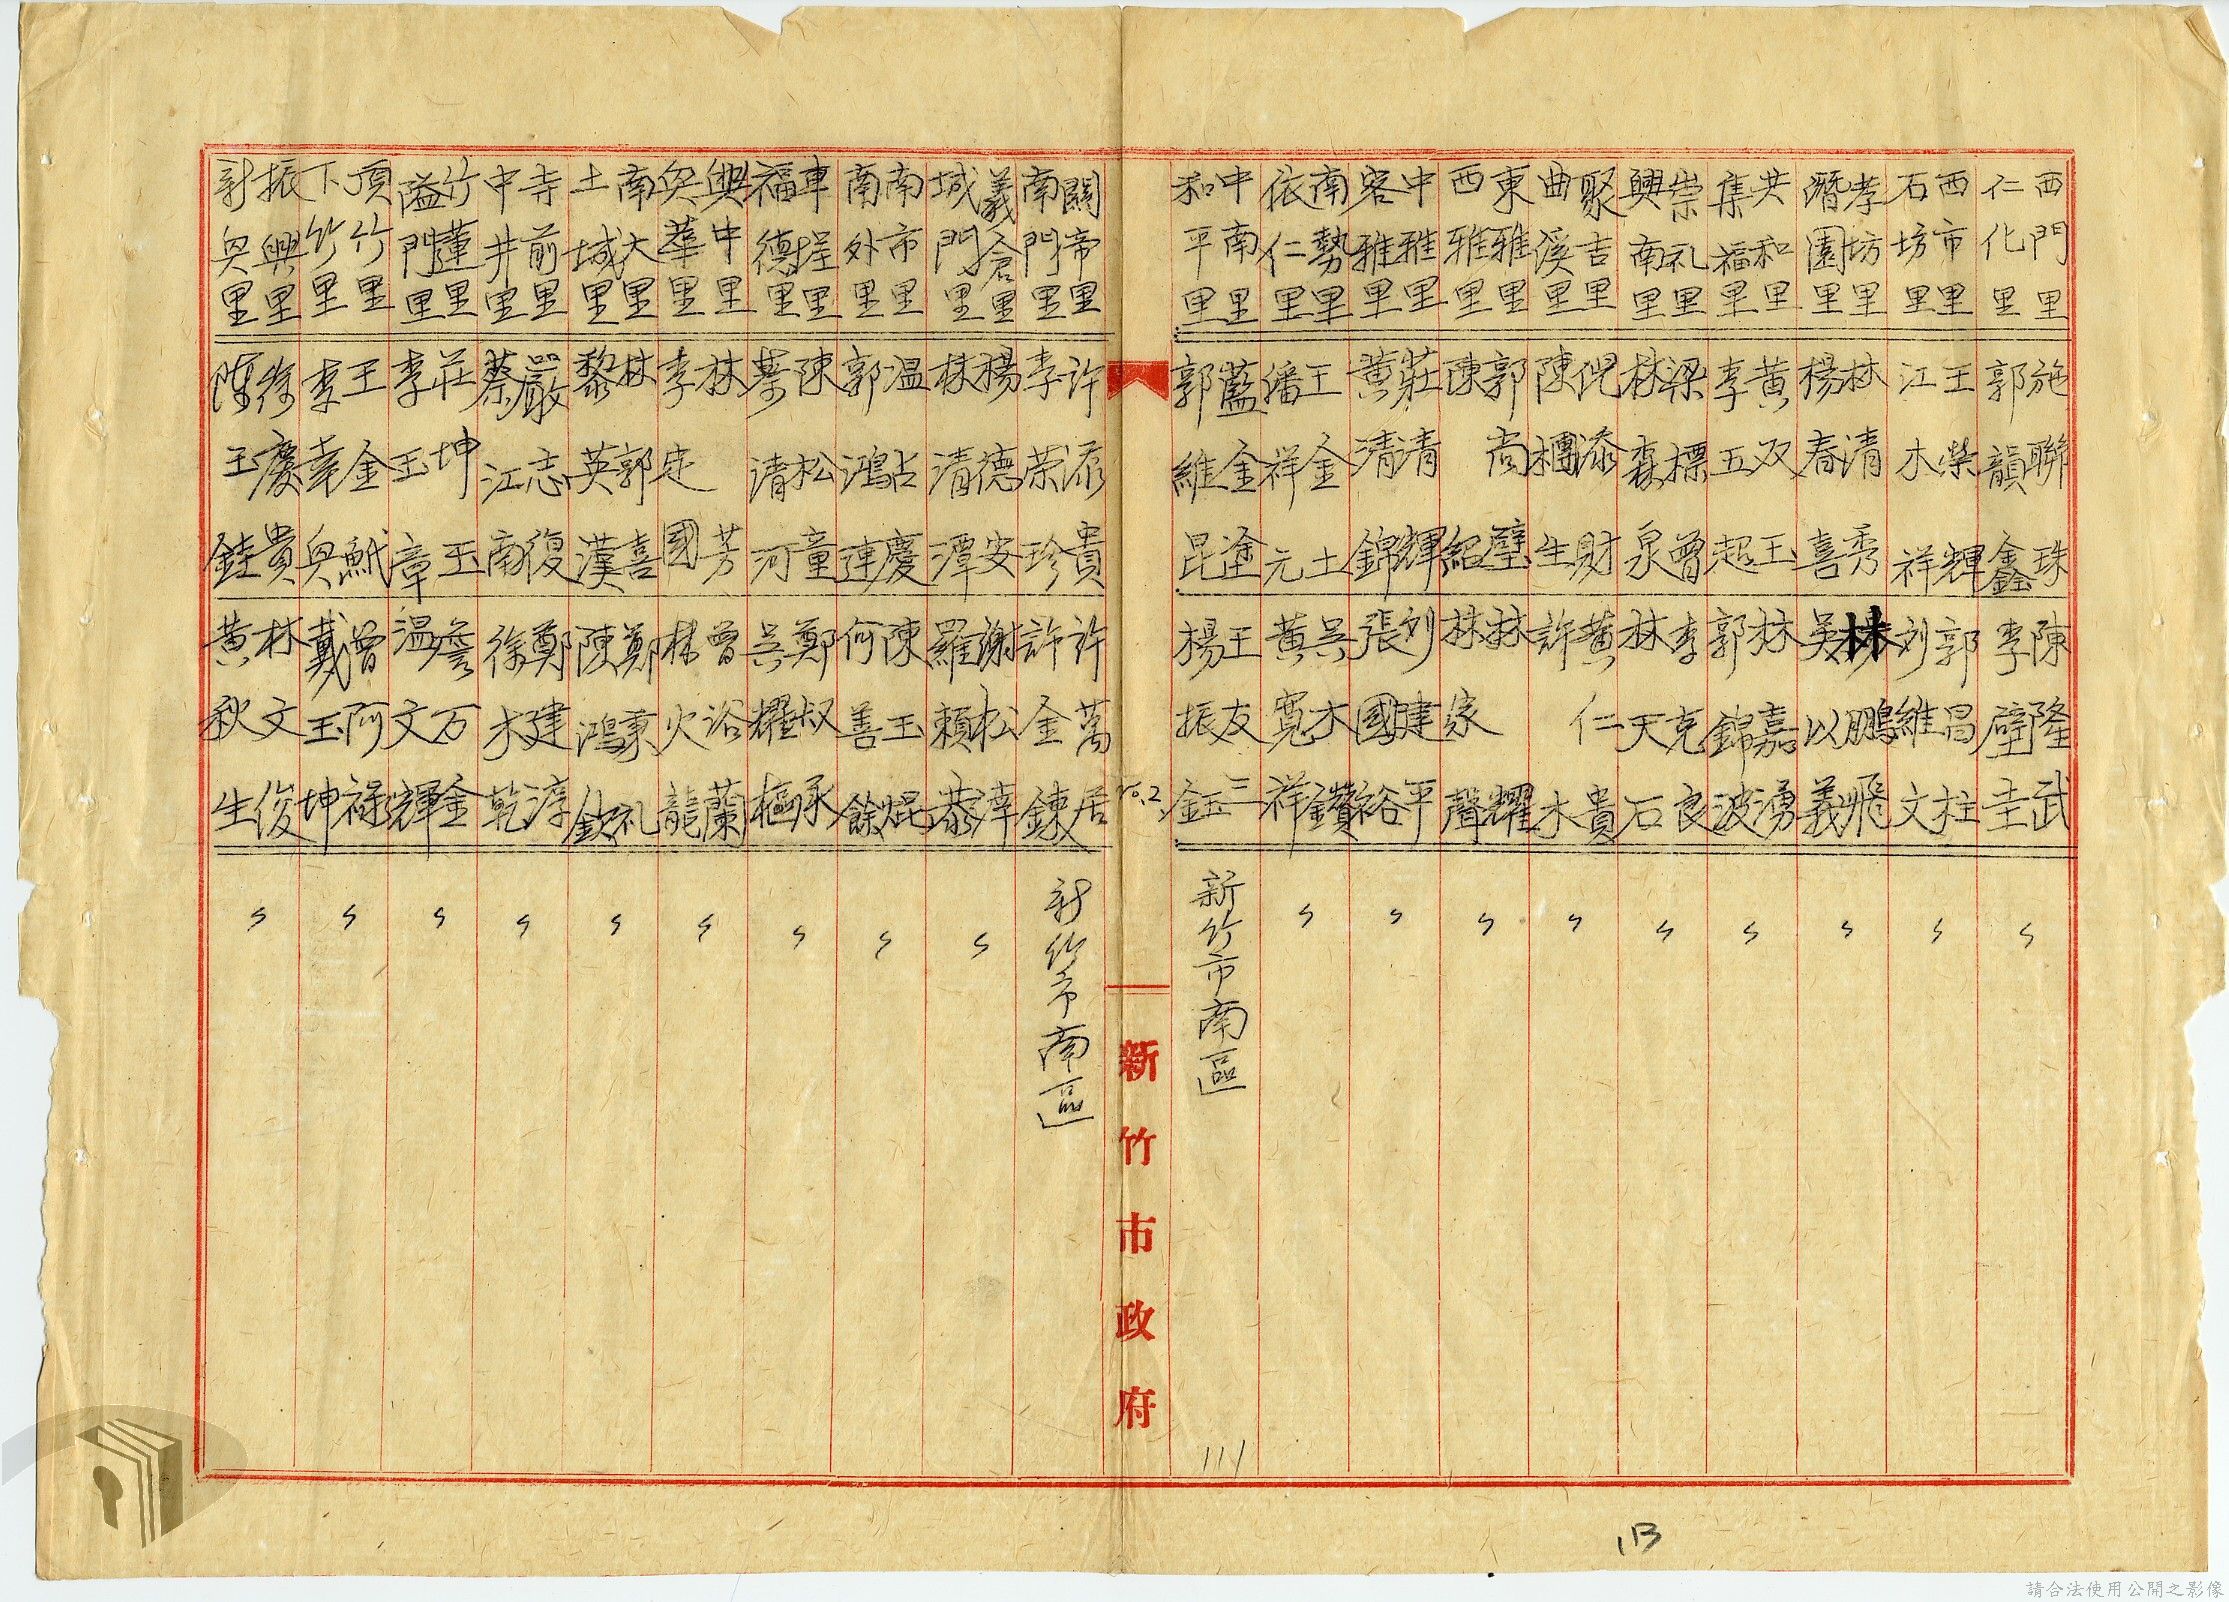 西門里 施聯珠 陳隆武
仁化里 郭韻鑫 李壁圭
西市里 王榮輝 郭昌柱
石坊里 江木祥 刘維文
孝坊里 林清秀 林鵬飛
潛園里 楊春喜 吳以義
共和里 黃双玉 林嘉湧
集福里 李五超 郭錦波
崇礼里 梁標曾 李克良
興南里 林森泉 林天石
聚吉里 倪添財 黃仁貴
曲溪里 陳欍生 許木
東雅里 郭尚璧 林耀
西雅里 陳紹 林家聲
中雅里 莊清輝 刘建平
客雅里 黃清錦 張國裕
南勢里 王金土 吳木鑽
依仁里 潘祥元 黃寬祥
中南里 藍金塗 王友三
和平里 郭維昆 楊振鈺
新竹市南區
〃 〃 〃 〃 〃 〃 〃 〃 〃
111
No.2
新竹市政府
關帝里 許添貴 許萬居
南門里 李荣珍 許金鍊
義倉里 楊德安 謝松濱
城門里 林清潭 羅賴恭
南市里 温占慶 陳玉焜
南外里 郭鴻連 何善餘
車埕里 陳松童 鄭叔承
福德里 蔡清河 吳耀樞
興中里 林芳 曾浴蘭
奧華里 李定國 林火龍
南大里 林郭喜 鄭東礼
土城里 黎英漢 陳鴻欽
寺前里 嚴志復 鄭建淳
中井里 蔡江南 徐木乾
竹蓮里 莊坤玉 詹万金
隘門里 李玉章 温文輝
頂竹里 王金魷 曾阿祿
下竹里 李幸與 戴玉坤
振興里 徐慶貴 林文俊
新與里 陳玉銈 黃秋生
新竹市南區
〃 〃 〃 〃 〃 〃 〃 〃 〃
13
請合法使用公開之影像